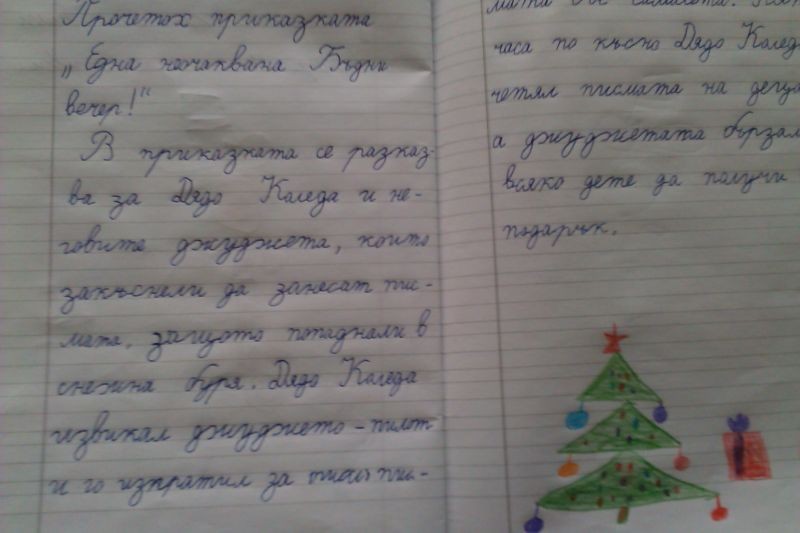 Прочетох приказката
„Една неочаквана Бъдни
вечер!“
В приказката се разказ-
ва за Дядо Коледа и не-
говите джуджета, които
закъснели да занесат пис-
мата, защото попаднали в
снежна буря. Дядо Коледа
извикал джуджето - пилот
и го изпратил за пис-
мата
часа по късно Дядо Колед
четял писмата на деца
а джуджетата бързал
всяко дете да получи
подарък.